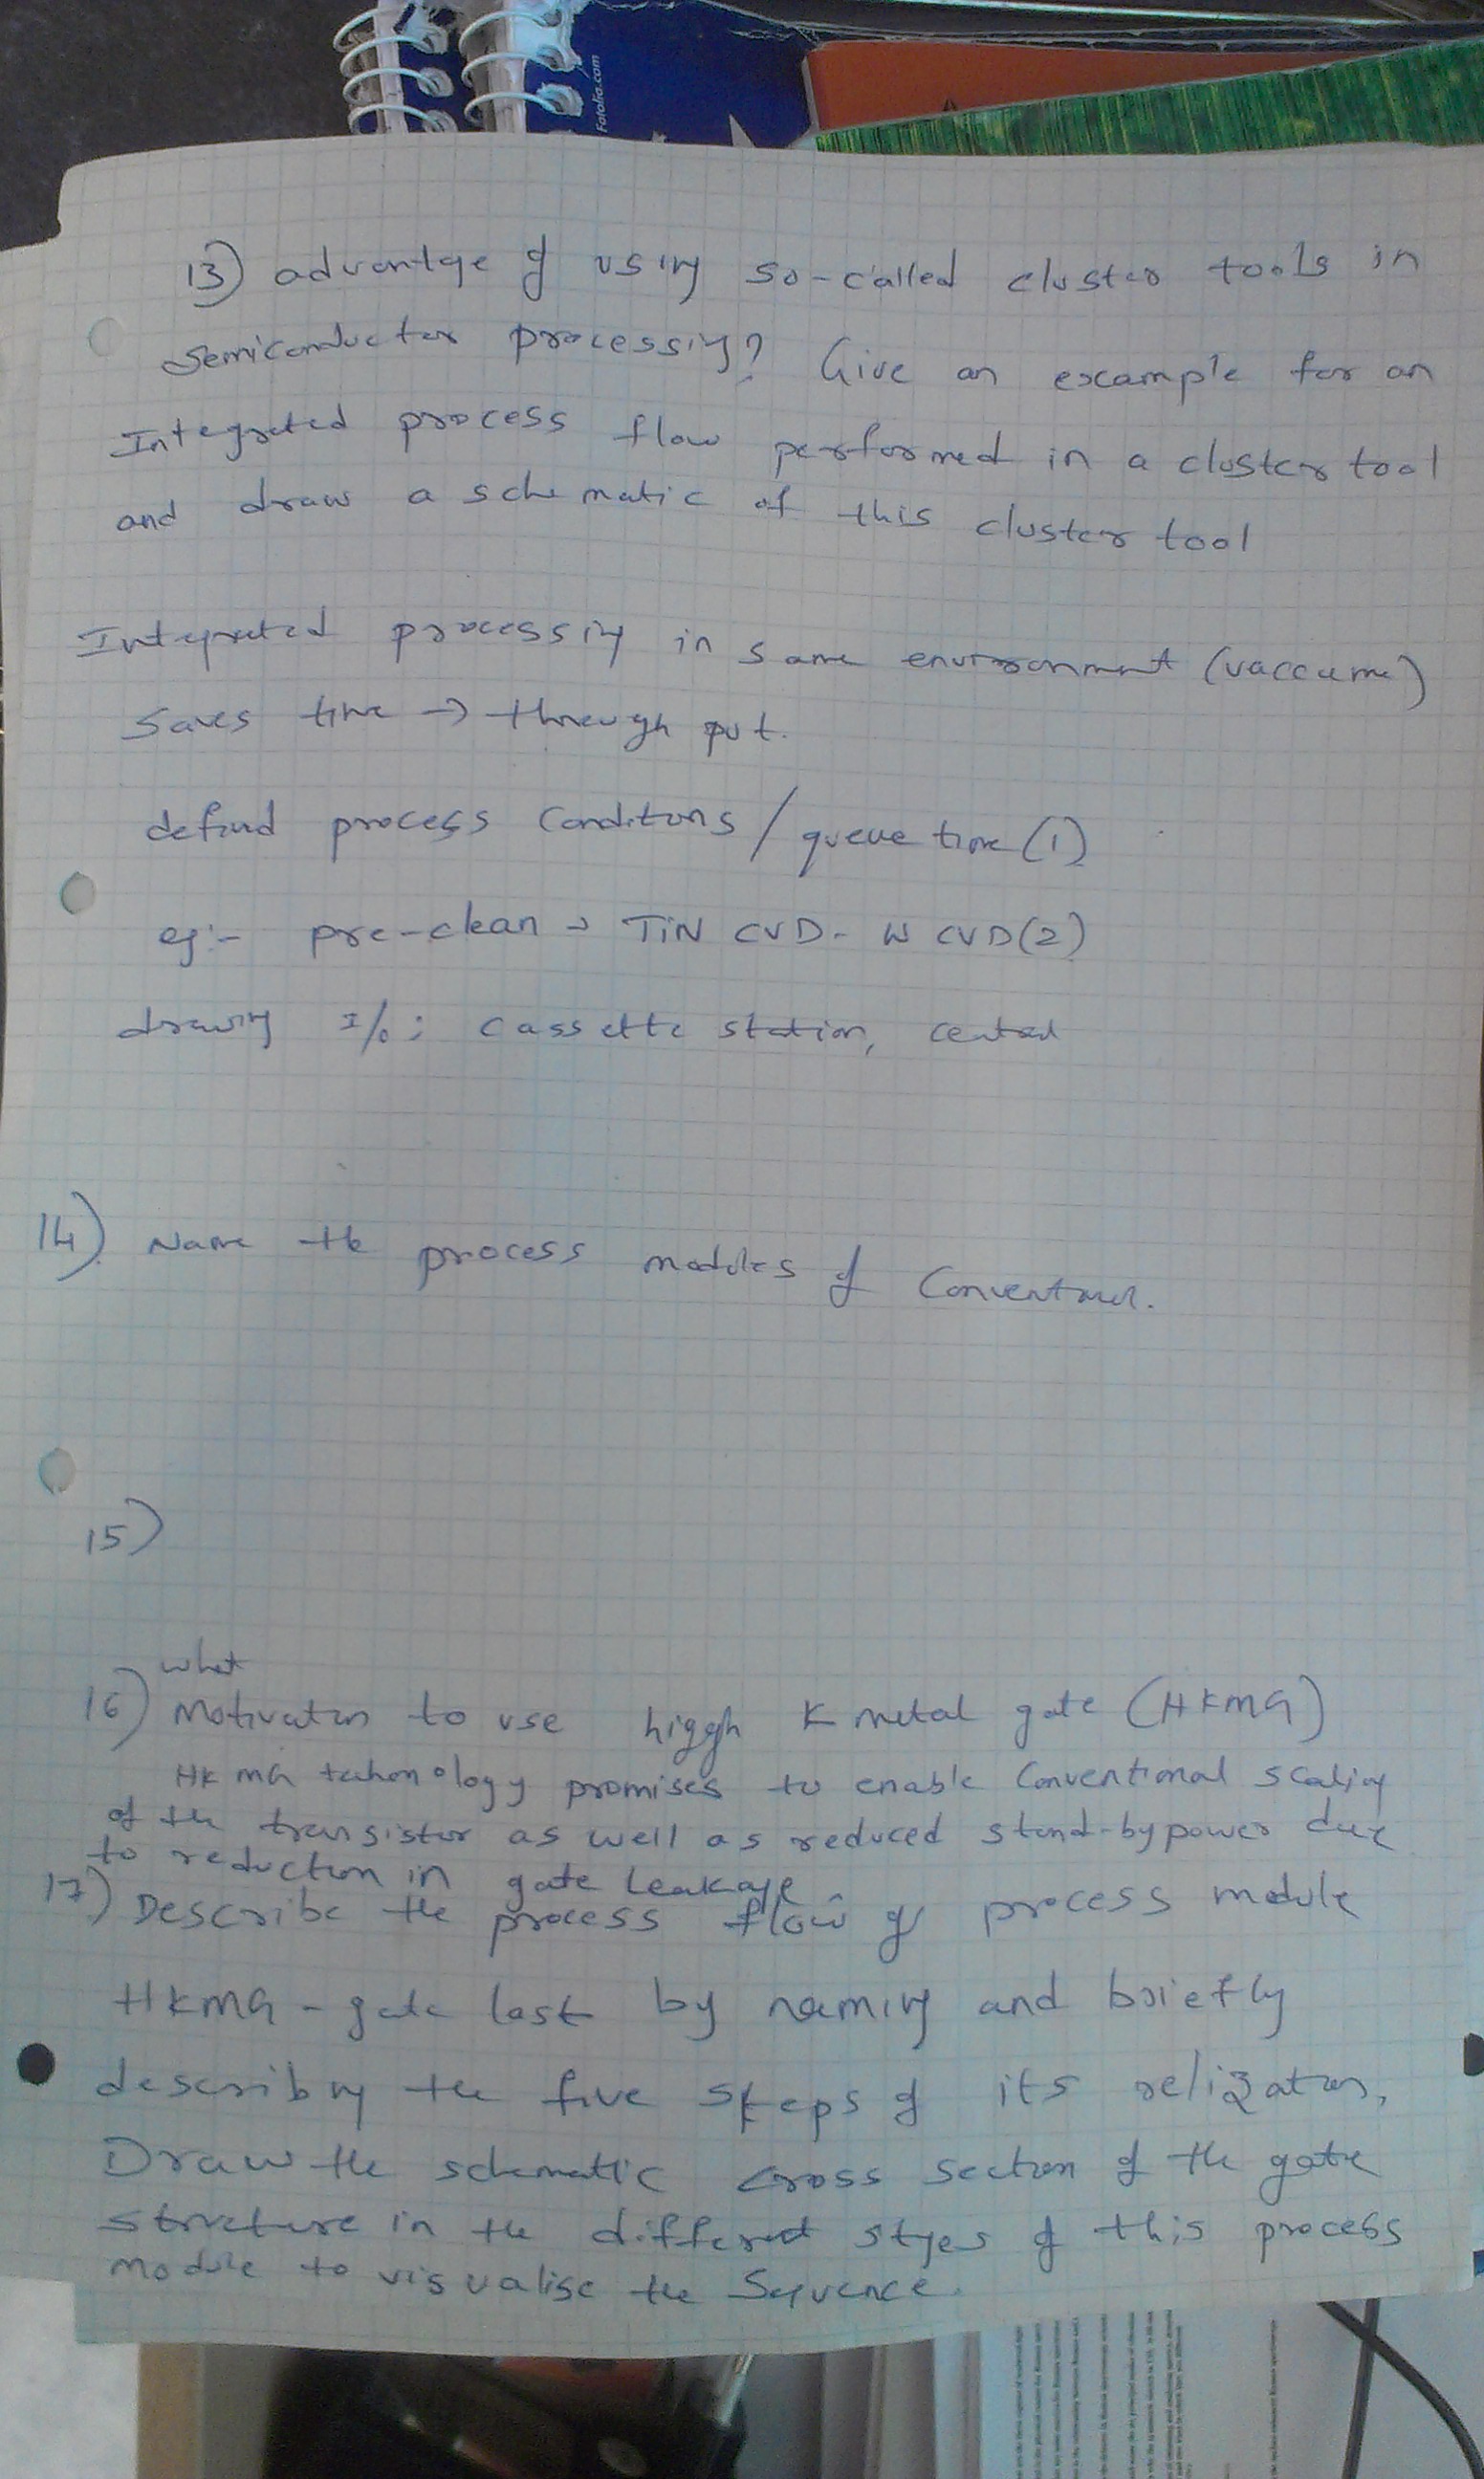 Fotolia.com
13) advantage of using so-called cluster tools in
Semiconductor processing? Give an example for an
Integrated process flow performed in a cluster tool
and draw a schematic of this cluster tool
Integrated processing in same environment (vaccume)
Saves time → through put.
defind process Conditions / queue time (1)
eg:- pre-clean → TiN CVD - W CVD (2)
drawing I/o; cassette station, central
14) Name the process modules of Conventional.
15)
what
16) Motivation to use higgh K metal gate (HKMG)
HKMG technology promises to enable Conventional scaling
of the transistor as well as reduced stand-by power due
to reduction in gate Leakage.
17) Describe the process flow of process module
HKMG - gate last by naming and briefly
describing the five steps of its relization,
Draw the schematic cross section of the gate
structure in the different stges of this process
module to visualise the Sequence.